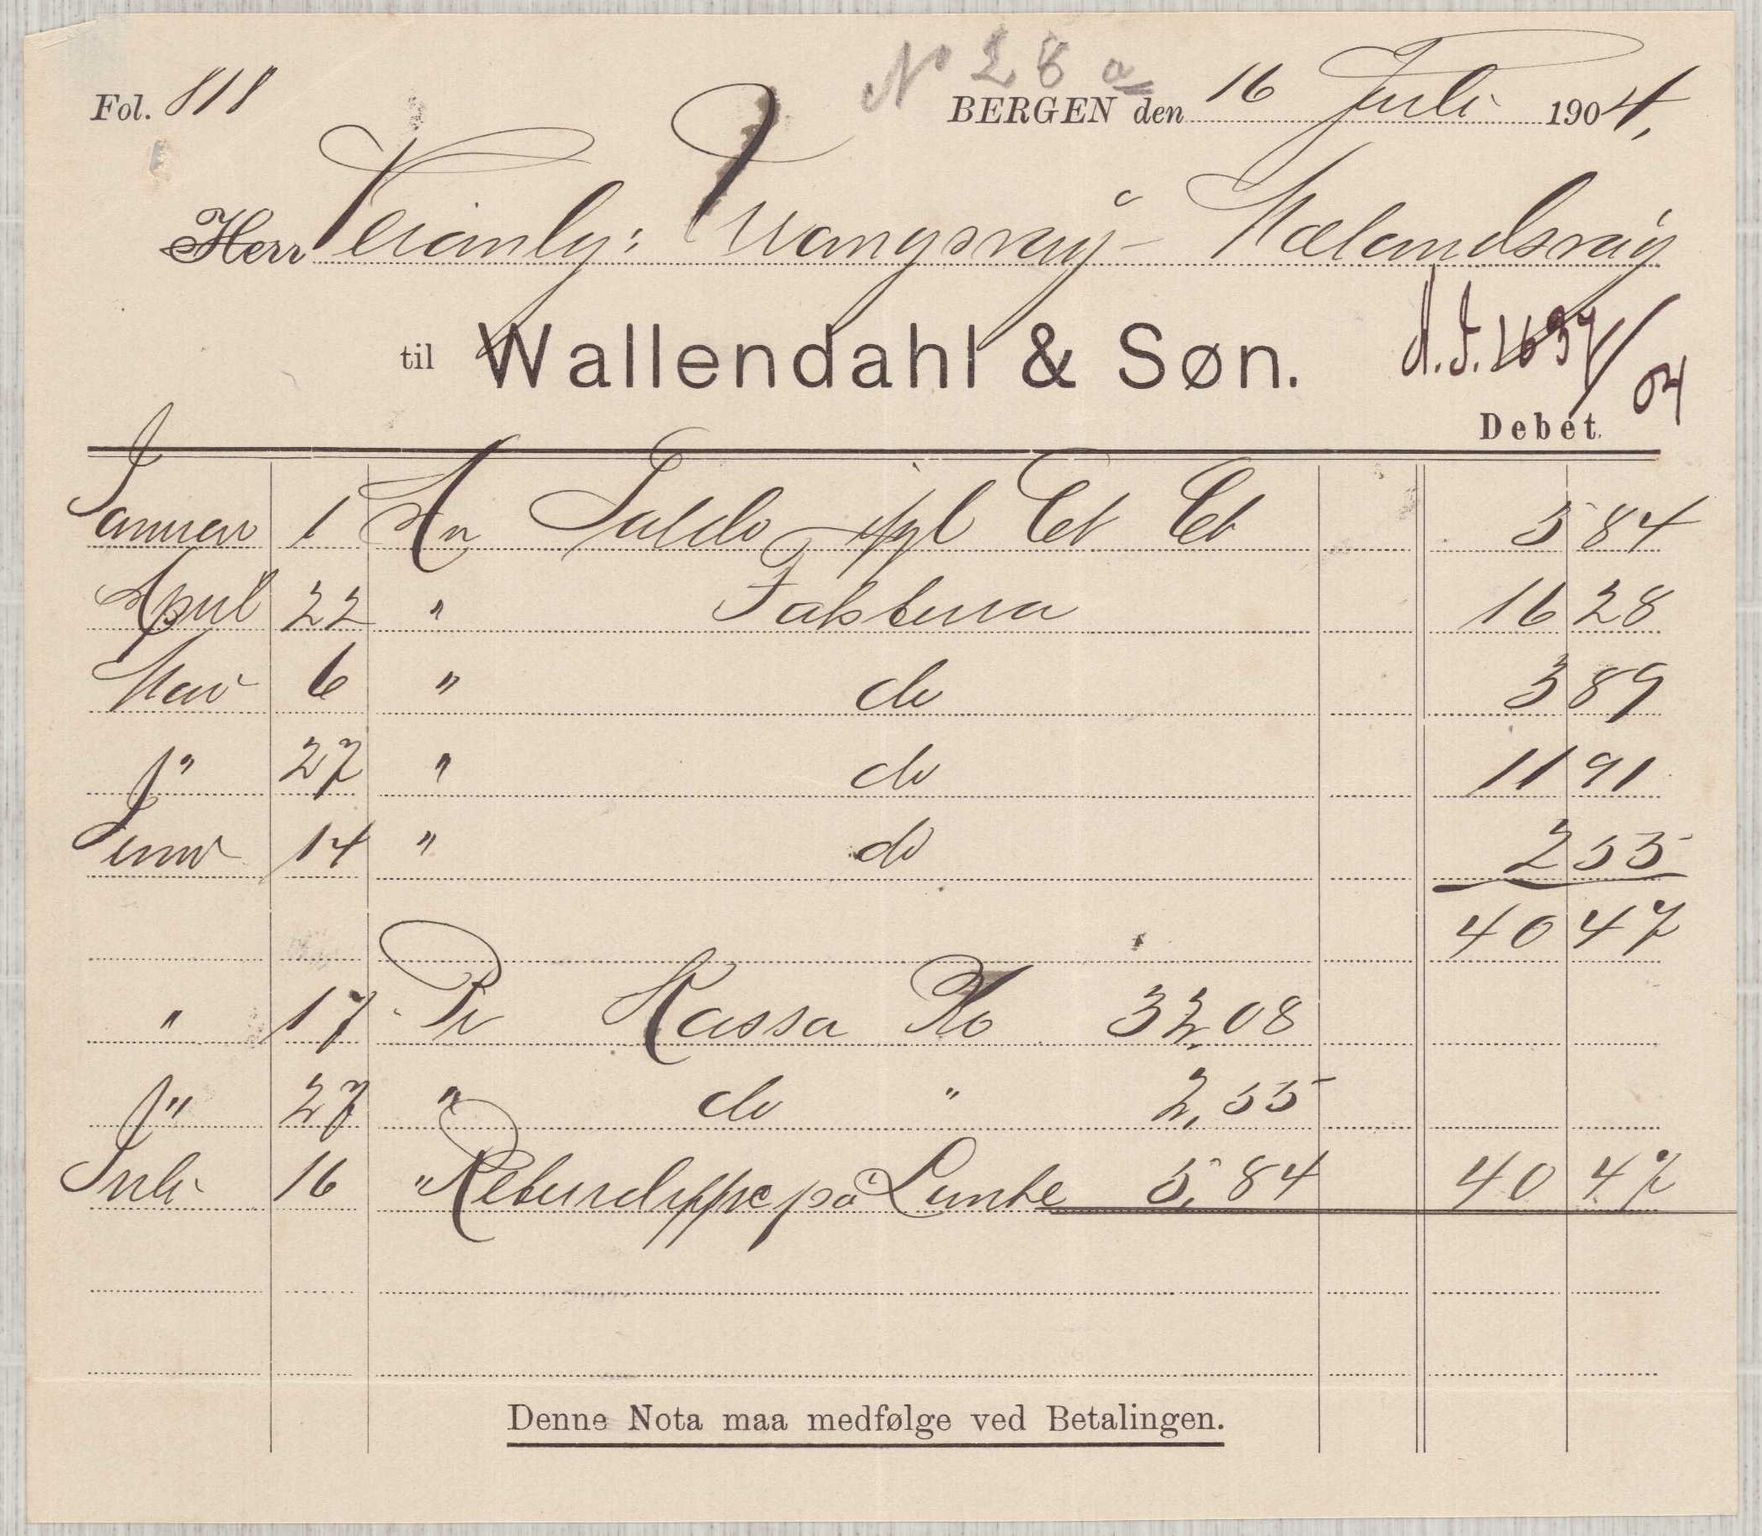 N 28 a
Fol. 818 BERGEN den 16 Juli 1904.
Herr Veianlg: Tvangsvåg - Hælandsvåg
til Wallendahl & Søn.
d.J. 1637/04
Debet.
Januar 1 An Saldo ifgl Ct Ct 5 84
April 22 " Faktura 16 28
Mai 6 " do 3 89
" 27 " do 11 91
Juni 14 " do 2 55
40 47
" 17 Pr Kassa Ko 32,08
" 27 " do " 2,55
Juli 16 " på Lunte 5,84 40 47
Denne Nota maa medfølge ved Betalingen.